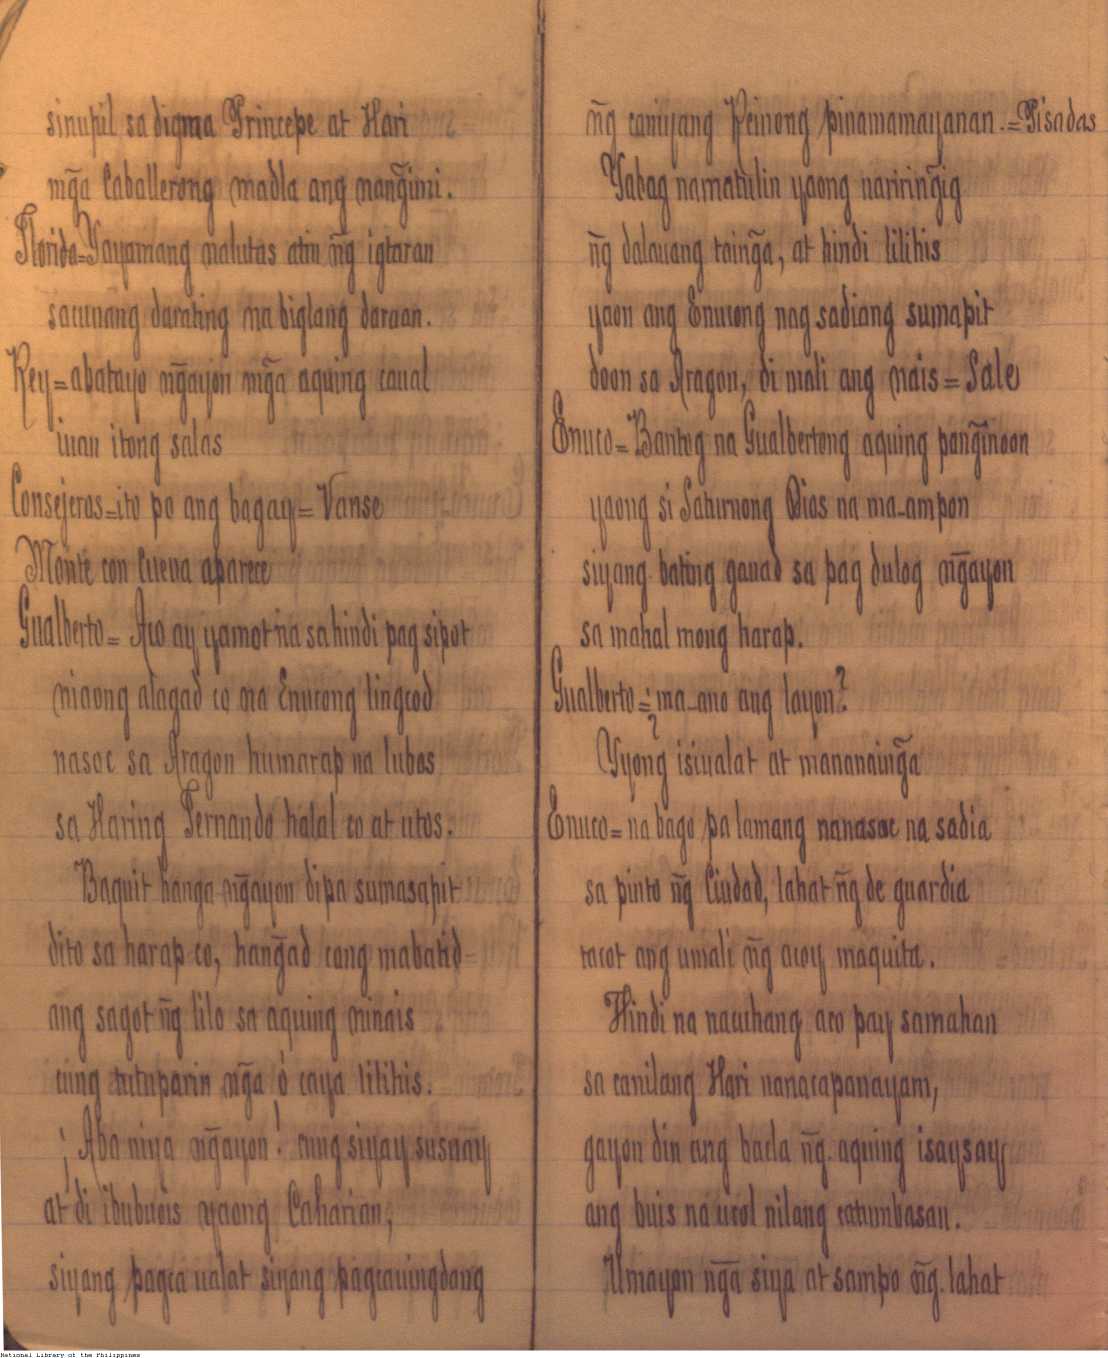 sinupil sa digma Princepe at Hari
mg̃a Caballerong madla ang nang̃imi.
Florida=Yayamang malutas atin ñg igtaran
sacunang darating na biglang daraan.
Rey=abatayo ng̃ayon mg̃a aquing caual
iuan itong salas
Consejeros=ito po ang bagay=Vanse
Monte con Cueva aparece
Gualberto= Aco ay yamot na sa hindi pag sipot
niaong alagad co na Enucong lingcod
nasoc sa Aragon humarap na lubos
sa Haring Fernando halal co at utos.
Baquit hanga ng̃ayon dipa sumasapit
dito sa harap co, hang̃ad cong mabatid-
ang sagot ñg lilo sa aquing ninais
cung tutuparin ng̃a ó caya lilihis.
¡Aba niya ng̃ayon! cung siyay susuay
at di ibubuis yaong Caharian,
siyang pagca ualat siyang pagcauingdang
ñg caniyang Reinong pinamamayanan.=Pisadas
Yabag namatulin yaong naririn͠gig
ñg dalauang taing̃a, at hindi lilihis
yaon ang Enucong nag sadiang sumapit
doon sa Aragon, di mali ang náis=Sale
Enuco=Bantog na Gualbertong aquing pang̃inoon
yaong si Saturnong Dios na ma-ampon
siyang bating gauad sa pag dulog ng̃ayon
sa mahal mong harap.
Gualberto=¿ma-ano ang layon?
Yyong isiualat at mananaing̃a
Enuco=na bago pa lamang nanasoc na sadia
sa pinto ñg Ciudad, lahat ñg de guardia
tacot ang umali ñg acoy maquita.
Hindi na nacuhang aco pay samahan
sa canilang Hari nanacapanayam,
gayon din ang bacla ñg aquing isaysay
ang buis na ucol nilang catumbasan.
Umayon ng̃a siya at sampo ñg lahat
National Library of the Philippines